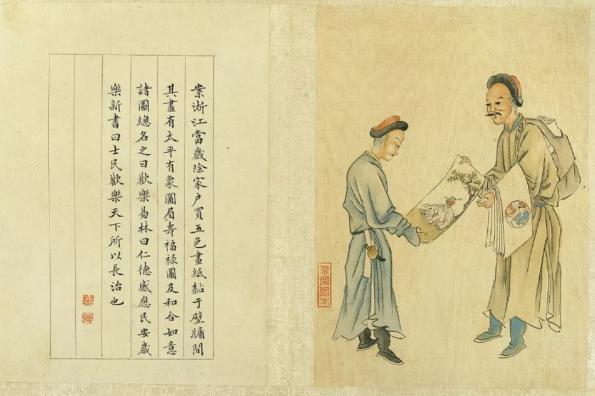 案浙江當歲除家戶買五色畫紙黏于壁牖間
其畫有太平有象圖眉壽福祿圖及和合如意
諸圖總名之曰歡樂易林曰仁德感應民安歲
樂新書曰士民歡樂天下所以長治也